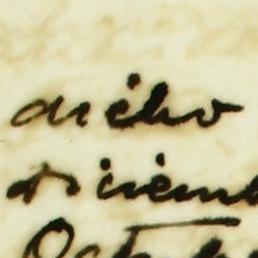 dicho
diciemb
Octub